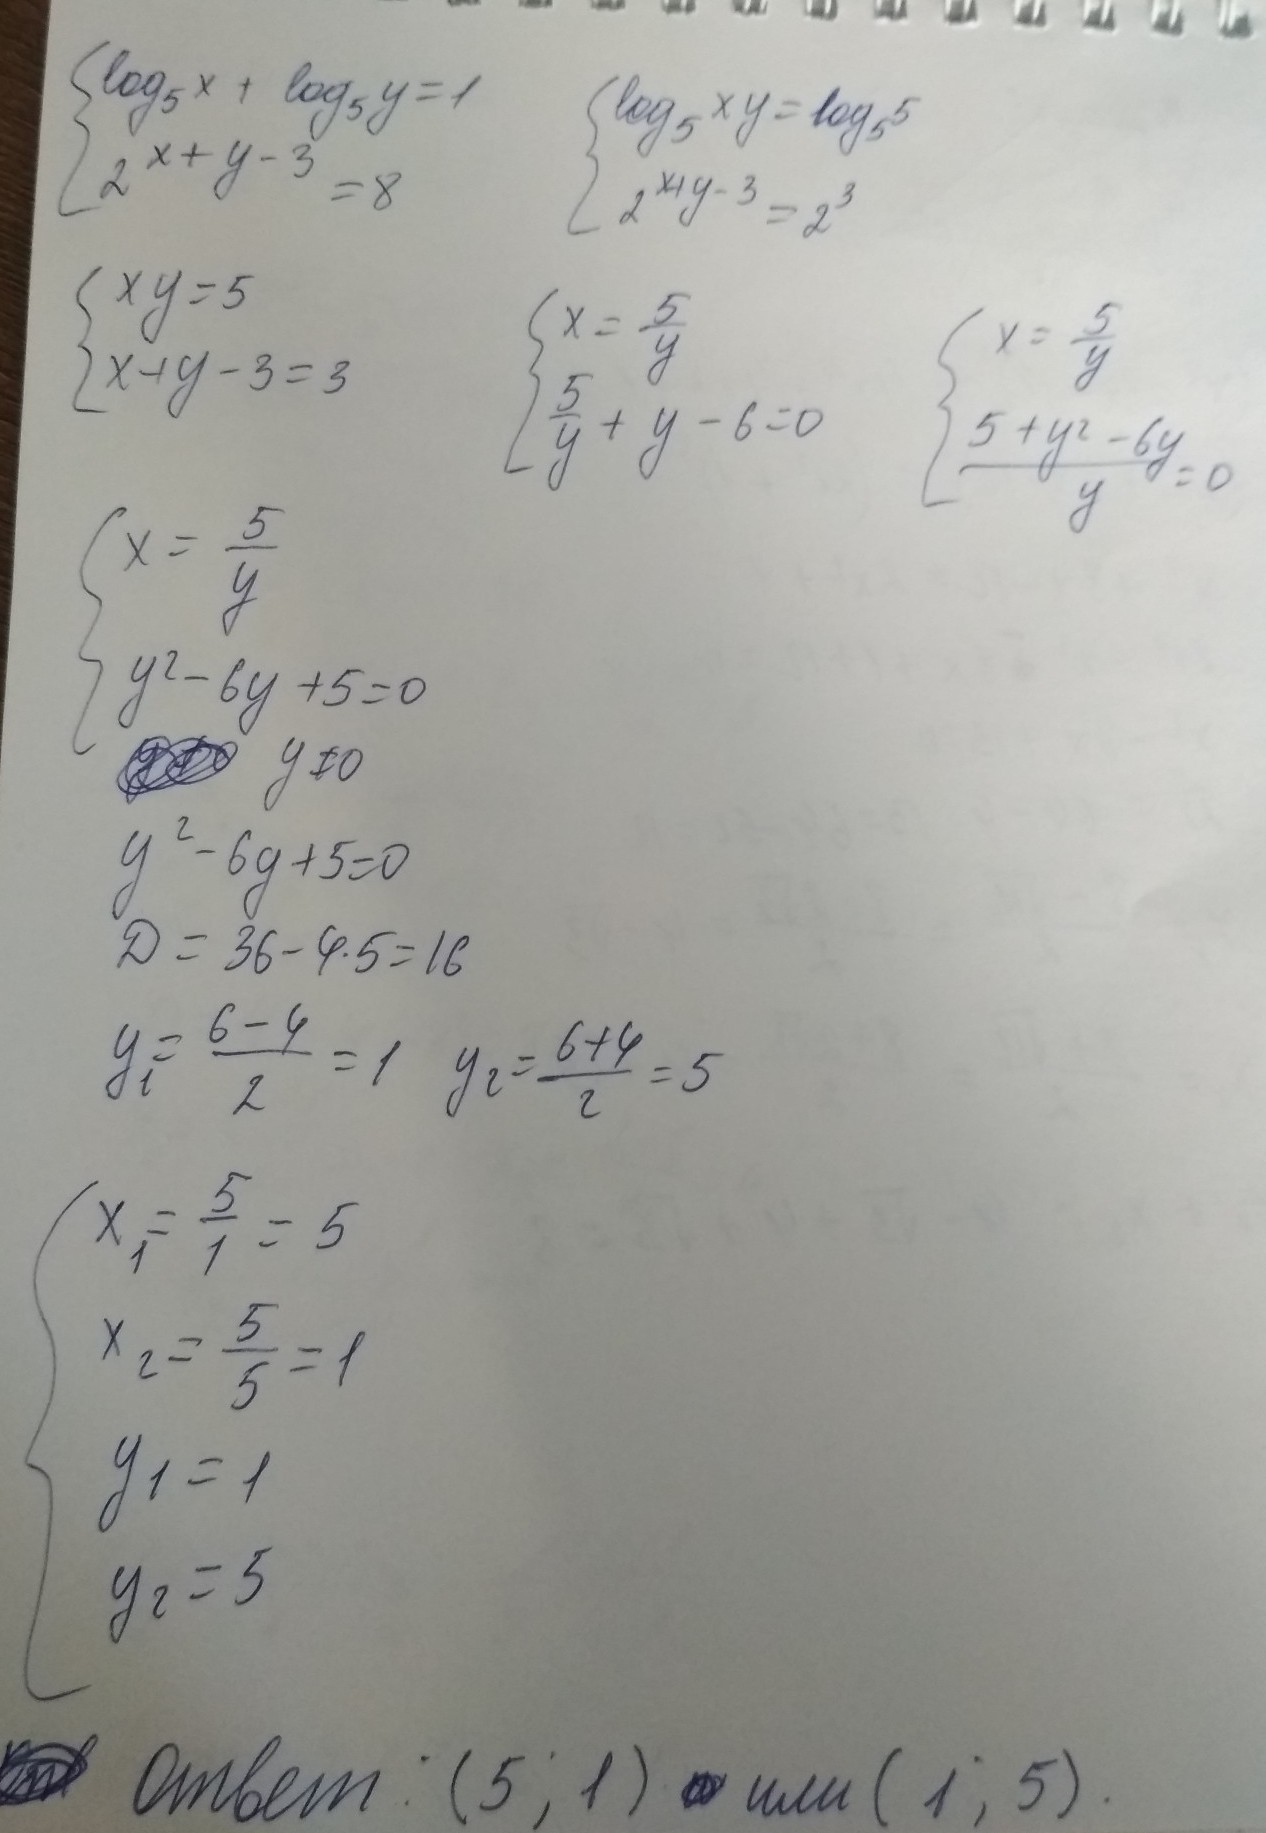 log₅x + log₅y = 1
2^(x+y-3) = 8
log₅xy = log₅5
2^(x+y-3) = 2³
xy = 5
x+y-3 = 3
x = 5/y
5/y + y - 6 = 0
x = 5/y
(5+y²-6y)/y = 0
x = 5/y
y²-6y+5=0
y≠0
y²-6y+5=0
D = 36-4·5=16
y₁ = (6-4)/2 = 1 y₂ = (6+4)/2 = 5
x₁ = 5/1 = 5
x₂ = 5/5 = 1
y₁ = 1
y₂ = 5
Ответ: (5; 1) или (1; 5).